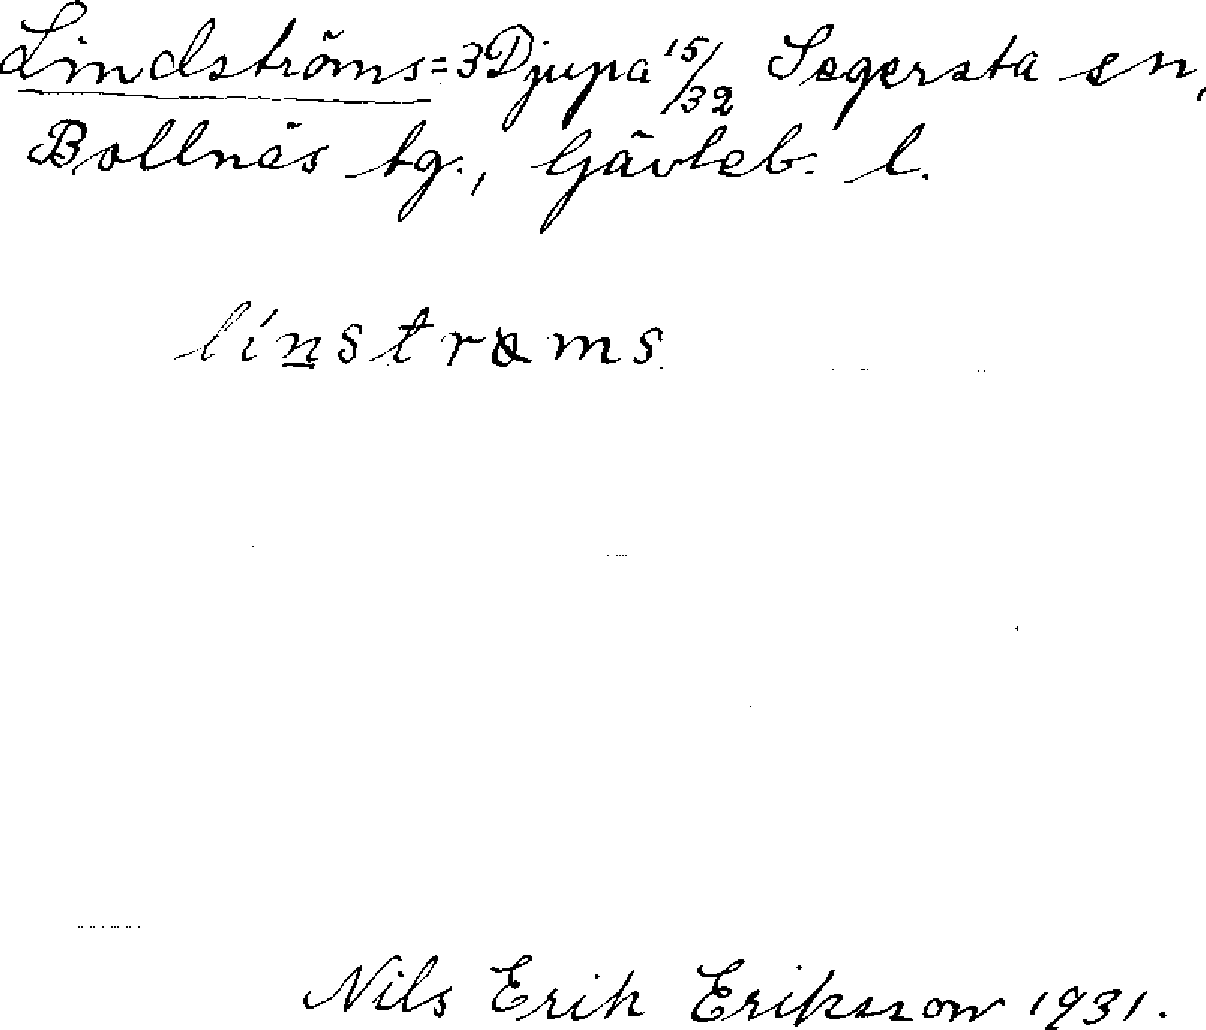 Lindströms=3 Djupa 15/32 Segersta sn,
Bollnäs tg., Gävleb. l.
línstrøms
Nils Erik Eriksson 1931.